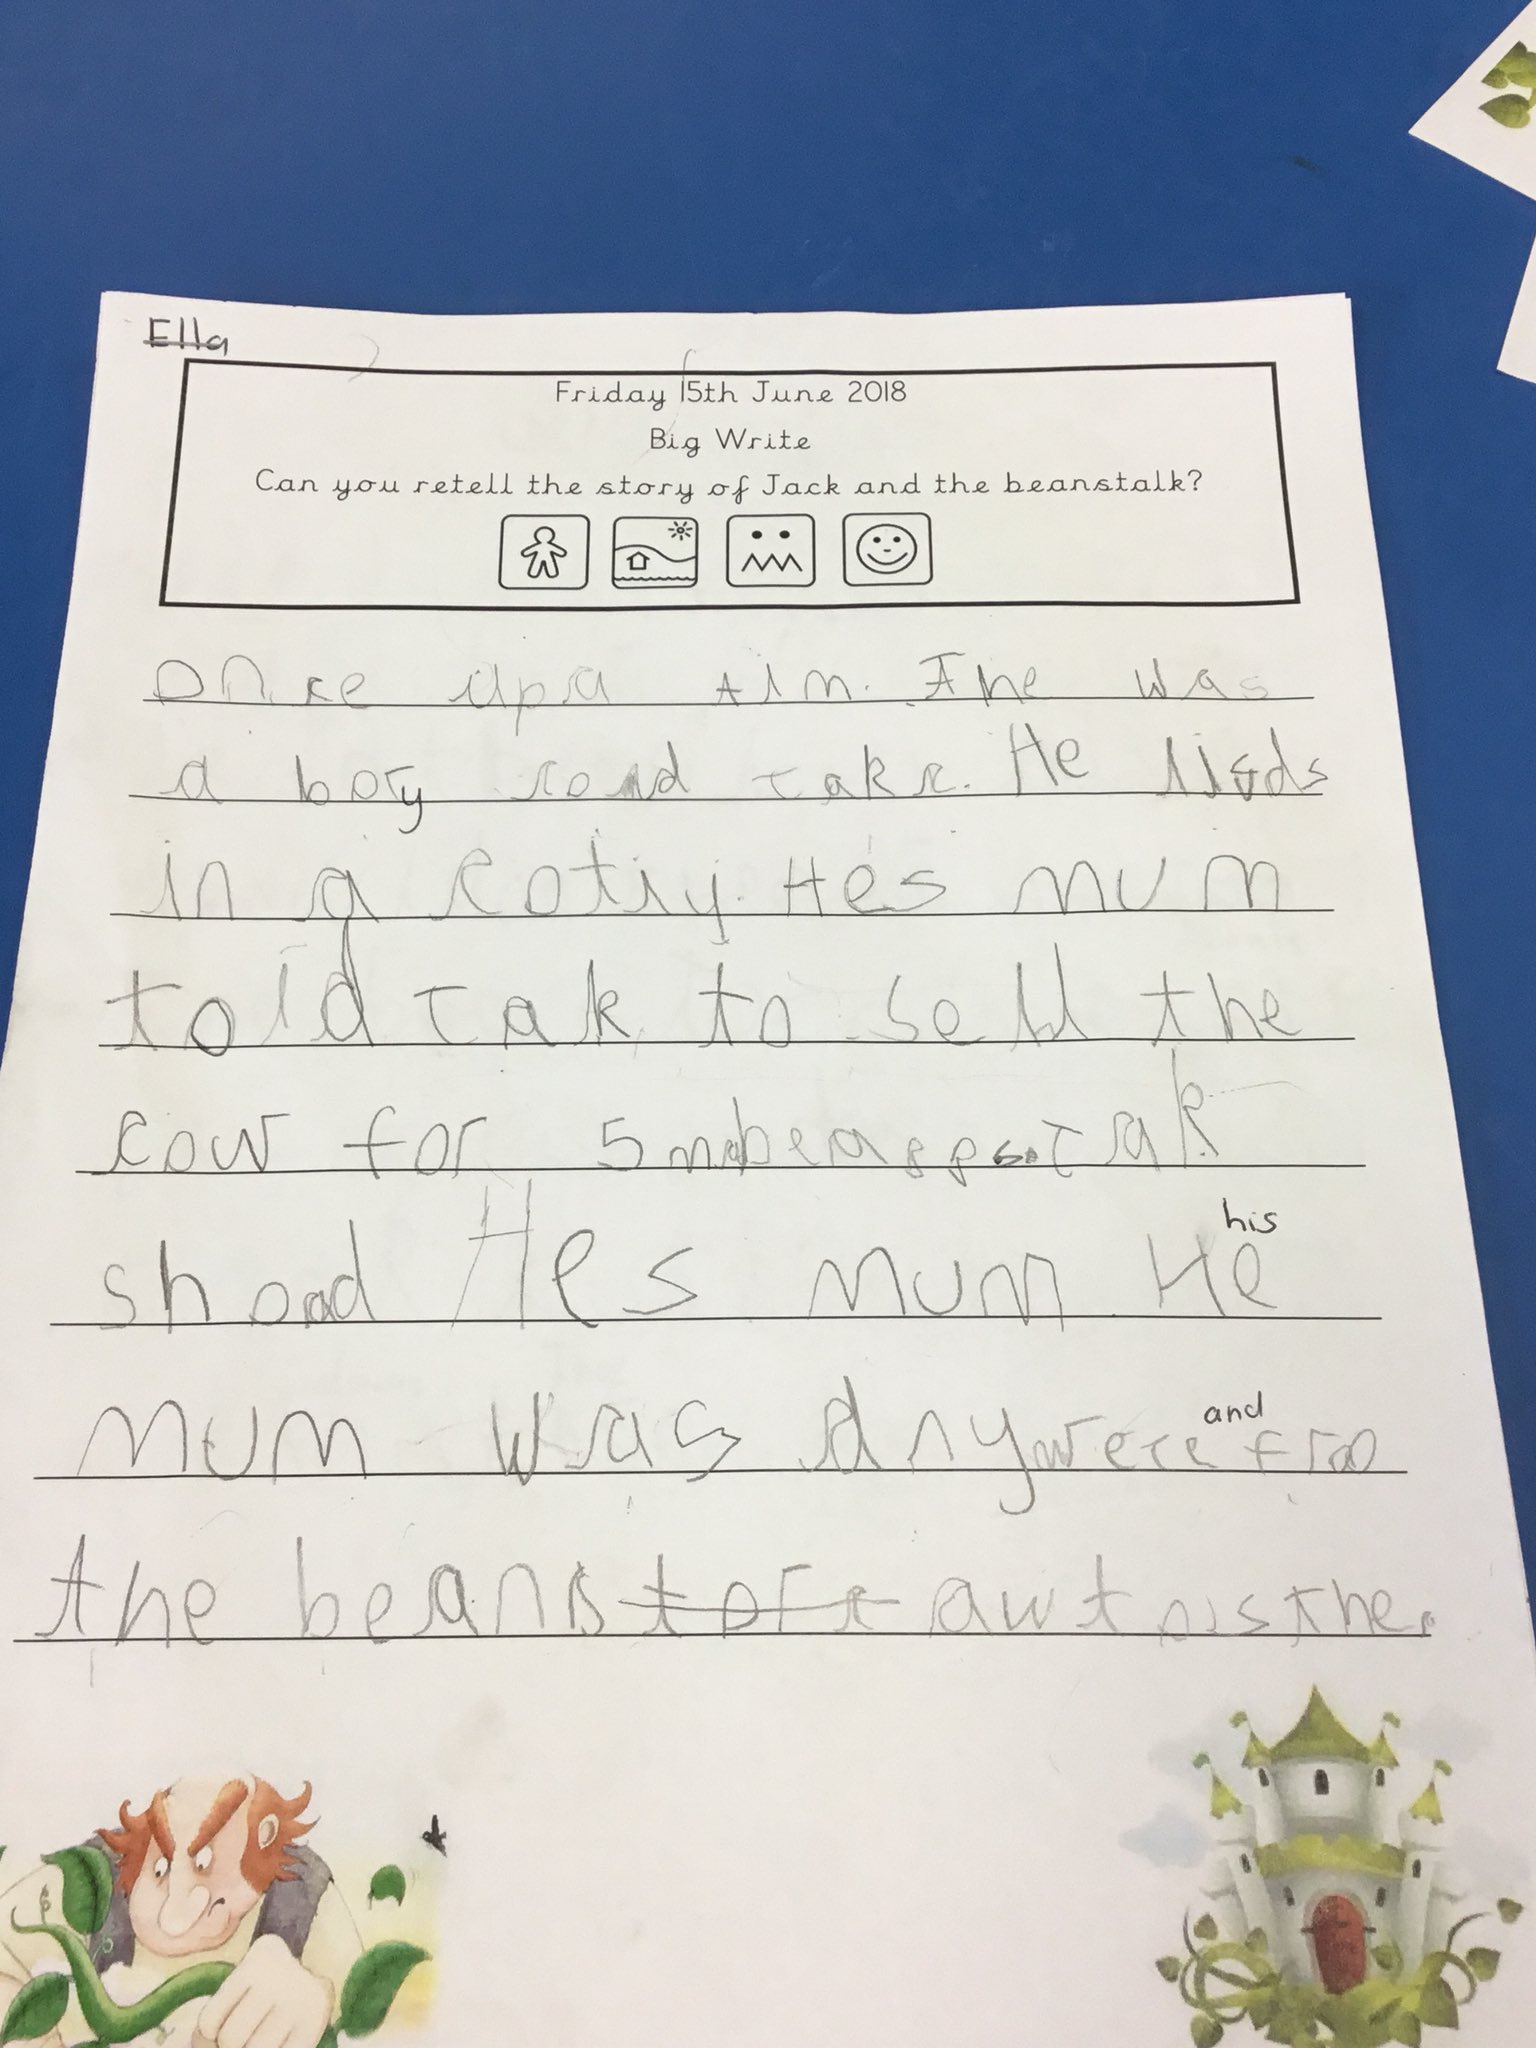 Ella
Friday 15th June 2018
Big Write
Can you retell the story of Jack and the beanstalk?
Once upa tim. The was
a boy cad Jake. He livds
in a cotiy. Hes mum
told Jak to sell the
cow for 5 Jak
shoad Hes mum He his
mum was anywere and froo
the beans awt the.